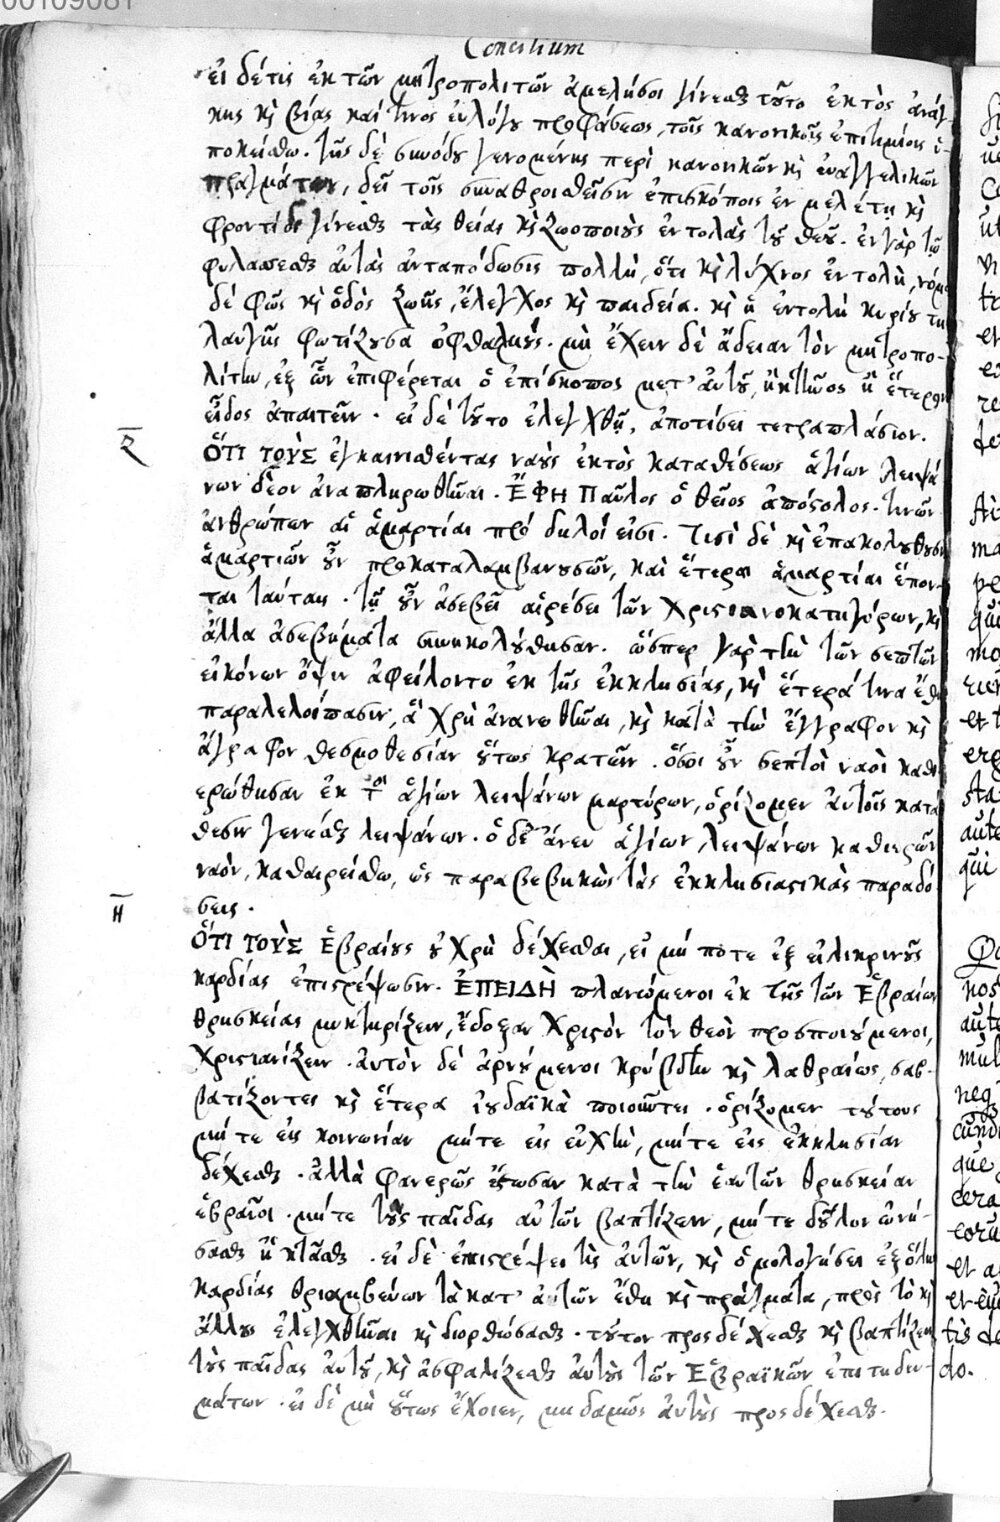 00109081
Concilium
εἰ δέ τις ἐκ τῶν μητροπολιτῶν ἀμελήσοι γίνεσθαι τοῦτο ἐκτὸς ἀνάγ-
κης καὶ βίας καί τινος εὐλόγου προφάσεως, τοῖς κανονικοῖς ἐπιτιμίοις ὑ-
ποκείσθω. τῆς δὲ συνόδου γενομένης περὶ κανονικῶν καὶ εὐαγγελικῶν
πραγμάτων, δεῖ τοῖς συναθροισθεῖσιν ἐπισκόποις ἐν μελέτῃ καὶ
φροντίδι γίνεσθαι τὰς θείας καὶ ζωοποιοὺς ἐντολὰς τοῦ θεοῦ. ἐν γὰρ τῷ
φυλάσσεσθαι αὐτὰς ἀνταπόδωσις πολλὴ, ὅτι καὶ λύχνος ἐντολὴ, νόμος
δὲ φῶς καὶ ὁδὸς ζωῆς, ἔλεγχος καὶ παιδεία. καὶ ἡ ἐντολὴ κυρίου τη
λαυγῆς φωτίζουσα ὀφθαλμούς. μὴ ἔχειν δὲ ἄδειαν τὸν μητροπο-
λίτην, ἐξ ὧν ἐπιφέρεται ὁ ἐπίσκοπος μετ' αὐτοῦ, ἢ κτῆνος ἢ ἕτερον
εἶδος ἀπαιτεῖν. εἰ δὲ τοῦτο ἐλεγχθῇ, ἀποτίσει τετραπλάσιον.
ζ
ὍΤΙ ΤΟῪΣ ἐγκαινισθέντας ναοὺς ἐκτὸς καταθέσεως ἁγίων λειψά
νων δέον ἀναπληρωθῆναι. ἜΦΗ Παῦλος ὁ θεῖος ἀπόστολος. τινῶν
ἀνθρώπων αἱ ἁμαρτίαι πρό δηλοί εἰσι. τισὶ δὲ καὶ ἐπακολουθοῦσιν
ἁμαρτιῶν οὖν προκαταλαμβανουσῶν, καὶ ἕτεραι ἁμαρτίαι ἕπον-
ται ταύταις. τῇ οὖν ἀσεβεῖ αἱρέσει τῶν χριστιανοκατηγόρων, καὶ
ἄλλα ἀσεβήματα συνηκολούθησαν. ὥσπερ γὰρ τὴν τῶν σεπτῶν
εἰκόνων ὄψιν ἀφείλοντο ἐκ τῆς ἐκκλησίας, καὶ ἕτερά τινα ἔθη
παραλελοίπασιν, ἃ χρὴ ἀνανεωθῆναι, καὶ κατὰ τὴν ἔγγραφον καὶ
ἄγραφον θεσμοθεσίαν οὕτως κρατεῖν. ὅσοι οὖν σεπτοὶ ναοὶ καθι
ερώθησαν ἐκ τὸς ἁγίων λειψάνων μαρτύρων, ὁρίζομεν αὐτοῖς κατά
θεσιν γενέσθαι λειψάνων. ὁ δὲ ἄνευ ἁγίων λειψάνων καθιερῶν
ναὸν, καθαιρείσθω, ὡς παραβεβηκὼς τὰς ἐκκλησιαστικὰς παραδό
σεις.
η
ὍΤΙ ΤΟῪΣ Ἑβραίους οὐ χρὴ δέχεσθαι, εἰ μή ποτε ἐξ εἰλικρινοῦς
καρδίας ἐπιστρέψωσιν. ἘΠΕΙΔῊ πλανώμενοι ἐκ τῆς τῶν Ἑβραίων
θρησκείας μυκτηρίζειν, ἔδοξαν Χριστὸν τὸν θεὸν προσποιούμενοι,
χριστιανίζειν. αὐτὸν δὲ ἀρνούμενοι κρύβδην καὶ λαθραίως, σαβ-
βατίζοντες καὶ ἕτερα ἰουδαϊκὰ ποιοῦντες. ὁρίζομεν τούτους
μήτε εἰς κοινωνίαν μήτε εἰς εὐχὴν, μήτε εἰς ἐκκλησίαν
δέχεσθαι. ἀλλὰ φανερῶς ἔστωσαν κατὰ τὴν ἑαυτῶν θρησκείαν
ἑβραῖοι. μήτε τοὺς παῖδας αὐτῶν βαπτίζειν, μήτε δοῦλον ὠνή-
σασθαι ἢ κτᾶσθαι. εἰ δὲ ἐπιστρέψει τὶς αὐτῶν, καὶ ὁμολογήσει ἐξ ὅλης
καρδίας θριαμβεύων τὰ κατ' αὐτῶν ἔθη καὶ πράγματα, πρὸς τὸ καὶ
ἄλλους ἐλεγχθῆναι καὶ διορθώσασθαι. τοῦτον προσδέχεσθαι καὶ βαπτίζειν
τοὺς παῖδας αὐτοῦ, καὶ ἀσφαλίζεσθαι αὐτοὺς τῶν Ἑβραϊκῶν ἐπιτηδευ-
μάτων. εἰ δὲ μὴ οὕτως ἔχοιεν, μηδαμῶς αὐτοὺς προσδέχεσθαι.